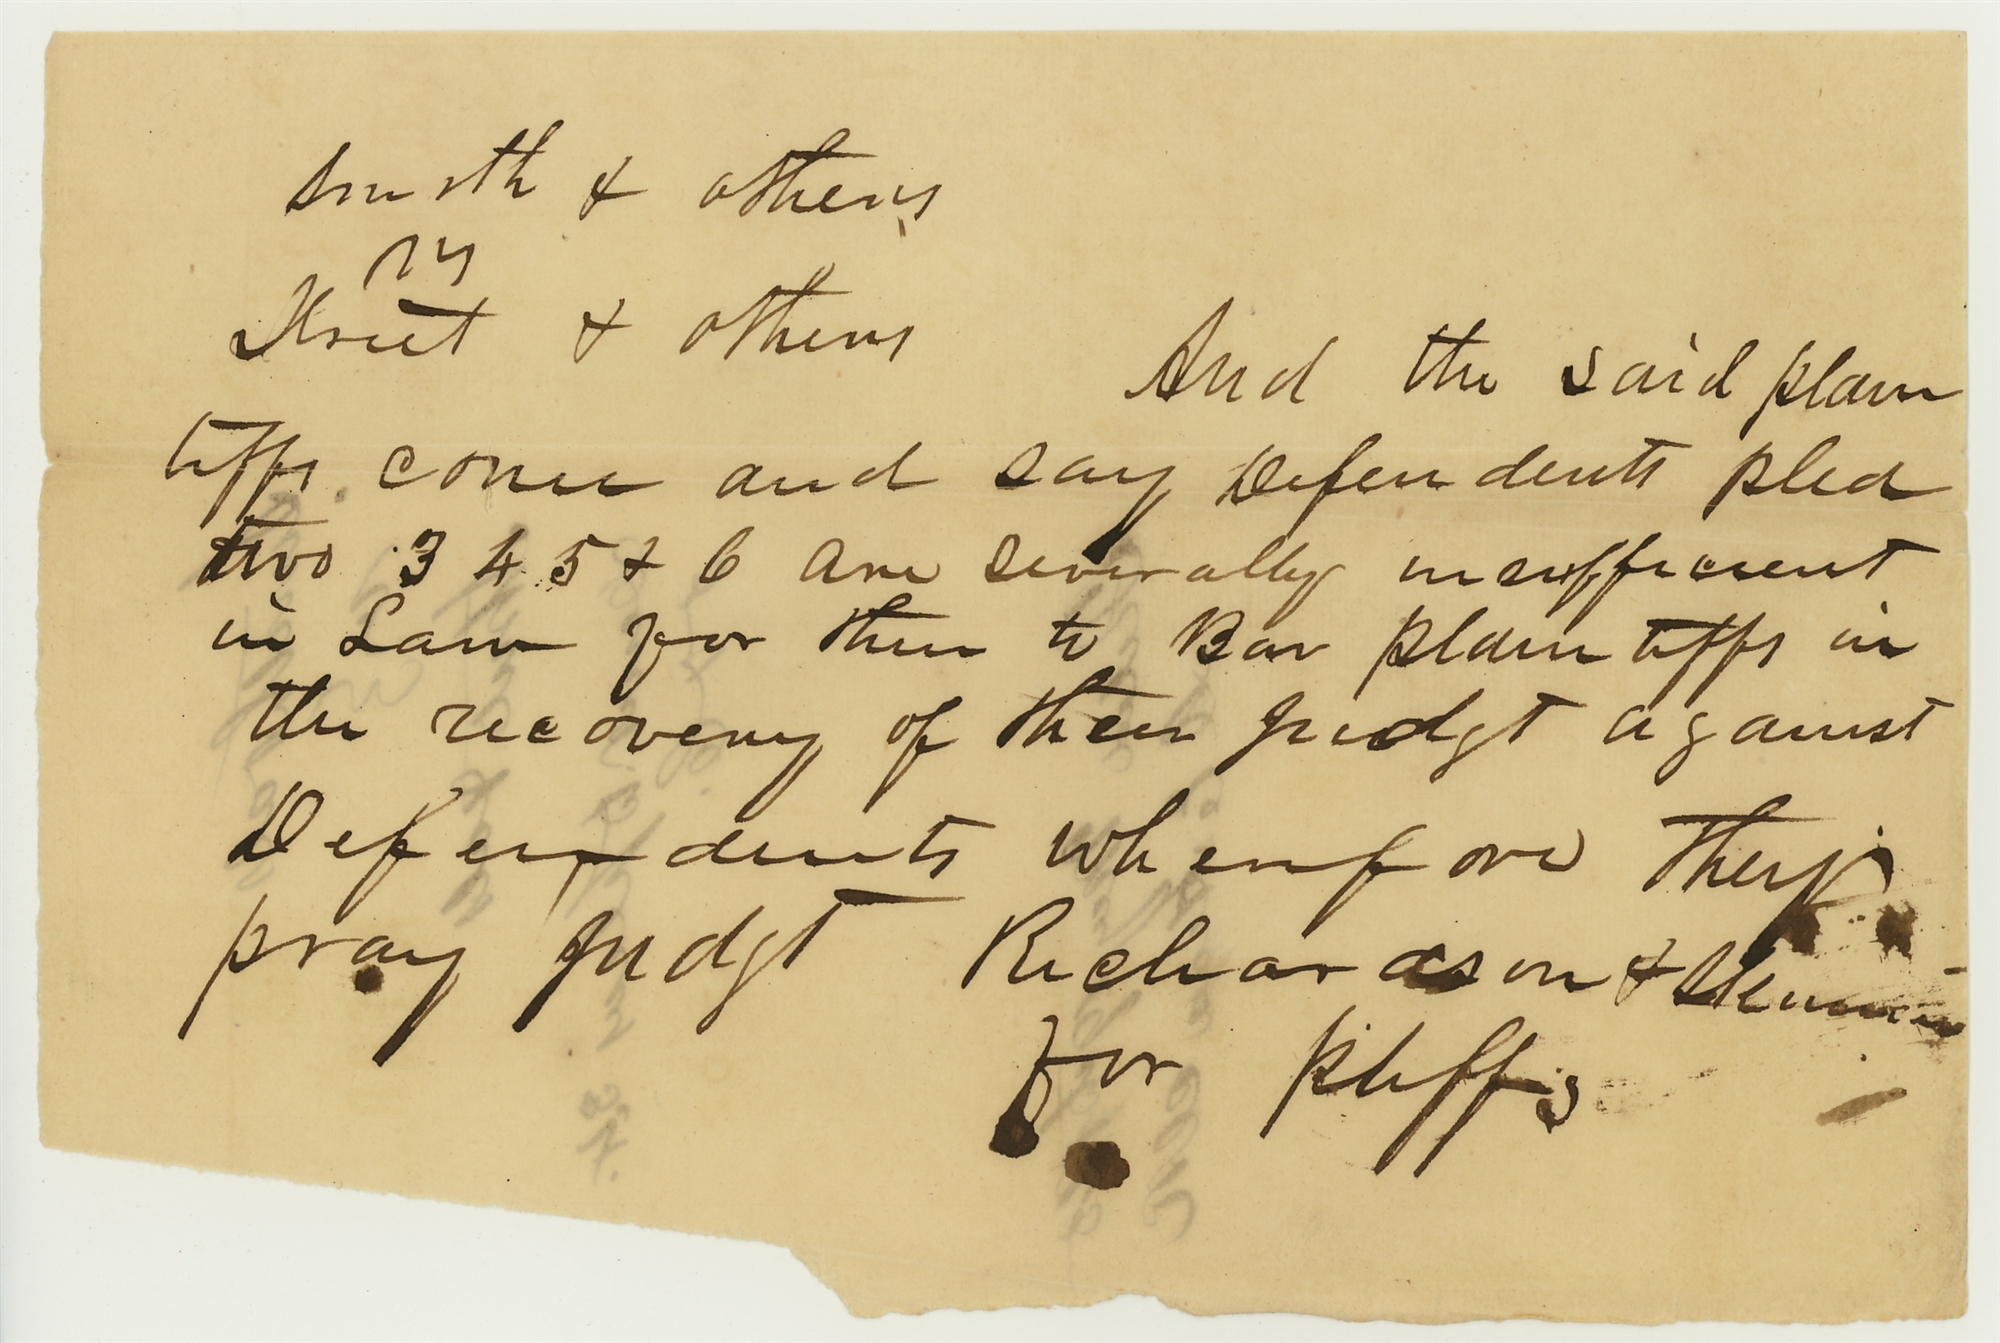 Smith & others
vs
& others
And the said plain
tiffs come and say Defendents plea
two 3 4 5 & 6 are severally insufficient
in Law for them to Bar plaintiffs in
the recovery of their judgt against
Defendents wherefore they
pray judgt Richardson &
for pltffs